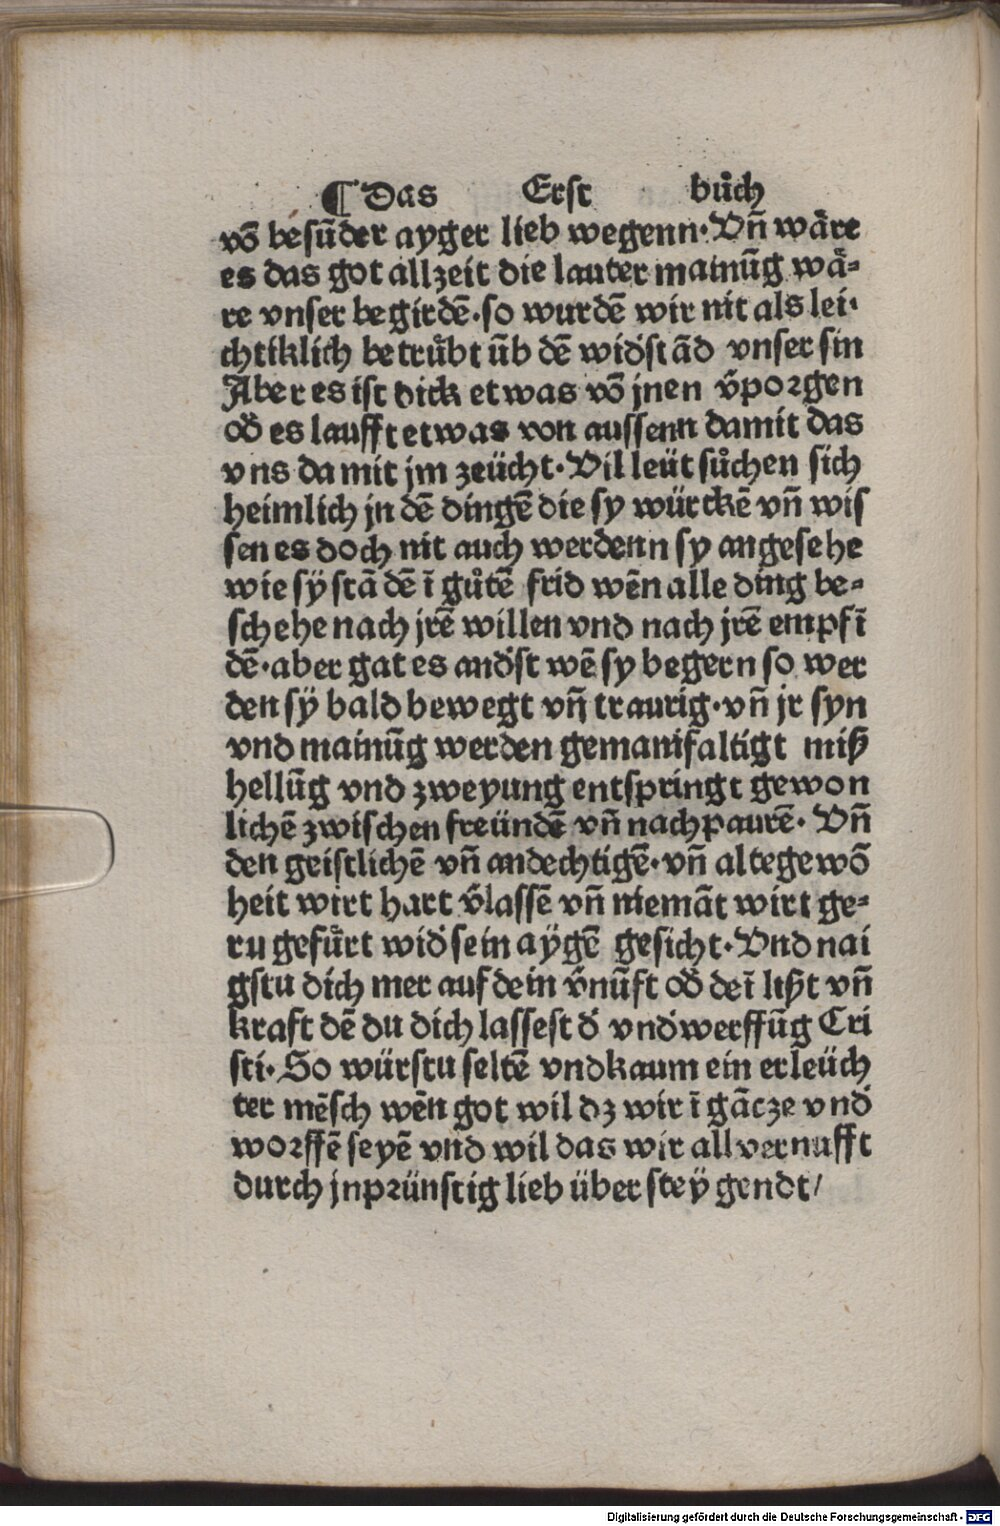 ¶ Das Erst bůch
võ besũder ayger lieb wegenn. Vñ wäre
es das got allzeit die lauter mainũg wä-
re vnser begirdẽ. so wurdẽ wir nit als lei-
chtiklich betrůbt ũb dẽ widʼstãd vnser sin
Aber es ist dick etwas võ jnen v̄porgen
odʼ es laufft etwas von aussenn damit das
vns damit jm zeücht. Vil leüt sůchen sich
heimlich jn dẽ dingẽ die sy würckẽ vñ wis
sen es doch nit auch werdenn sy angesehe
wie sÿ stãdẽ ĩ gůtẽ frid wẽn alle ding be-
schehe nach jrẽ willen vnd nach jrẽ empfĩ
dẽ. aber gat es andʼst wẽ sy begern so wer
den sÿ bald bewegt vñ traurig. vñ jr syn
vnd mainũg werden gemanifaltigt miß
hellũg vnd zweyung entspringt gewon
lichẽ zwischen freündẽ vñ nachpaurẽ. Vñ
den geistlichẽ vñ andechtigẽ. vñ alte gewõ
heit wirt hart v̄lassẽ vñ niemãt wirt ge-
ru gefůrt widʼ sein aÿgẽ gesicht. Vnd nai
gstu dich mer auf dein v̄nũft odʼ deĩ lißt vñ
kraft dẽ du dich lassest dʼ vndʼwerffũg Cri
sti. So würstu seltẽ vnd kaum ein erleüch
ter mẽsch wẽn got wil dz wir ĩ gãcze vndʼ
worffẽ seyẽ vñd wil das wir all vernufft
durch jnprünstig lieb über steÿgendt/
Digitalisierung gefördert durch die Deutsche Forschungsgemeinschaft - DFG